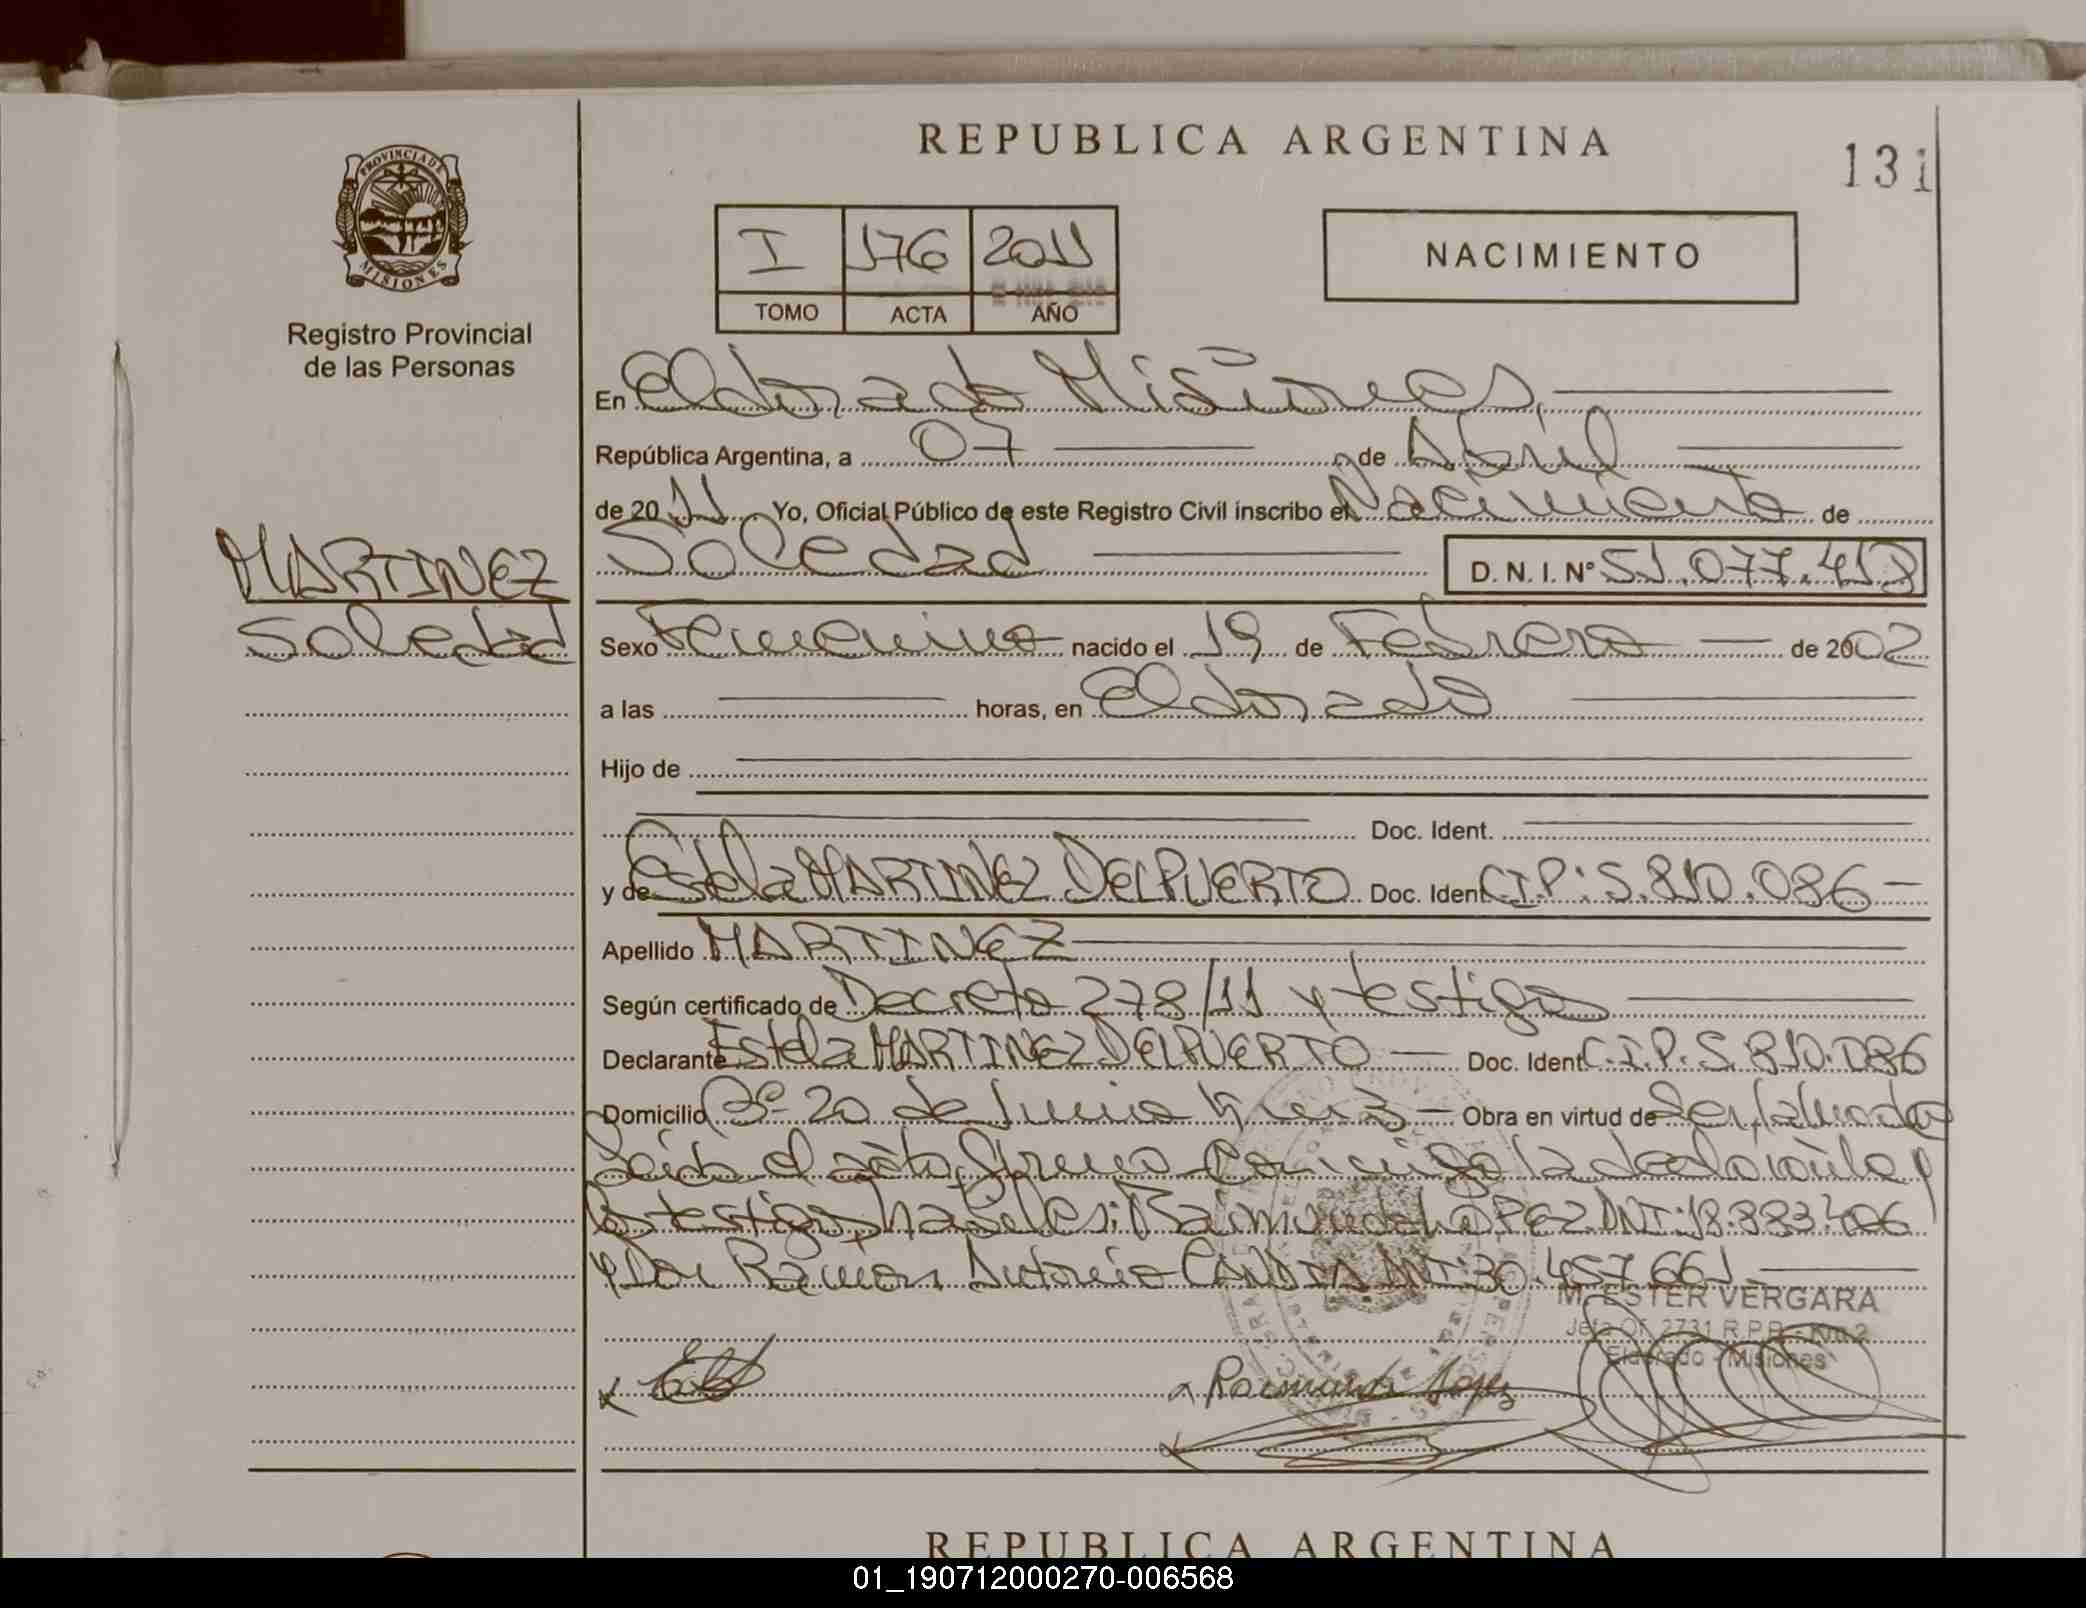 REPUBLICA ARGENTINA
131
PROVINCIA DE
MISIONES
Registro Provincial
de las Personas
I 176 2011
TOMO ACTA AÑO
NACIMIENTO
En Eldorado Misiones,
República Argentina, a 07 de Abril
de 2011 Yo, Oficial Público de este Registro Civil inscribo el Nacimiento de
Soledad D. N. I. Nº 51.077.418
MARTINEZ
Soledad
Sexo Femenino nacido el 19 de Febrero de 2002
a las horas, en Eldorado
Hijo de
Doc. Ident.
y de Estela MARTINEZ DELPUERTO Doc. Ident C.I.P: 5.810.086
Apellido MARTINEZ
Según certificado de Decreto 278/11 y testigos
Declarante Estela MARTINEZ DELPUERTO Doc. Ident C.I.P. 5.810.086
Domicilio Bº 20 de Junio Obra en virtud de
Leída el acta, firma conmigo la declarante y
los testigos hábiles: Raimundo LOPEZ DNI: 18.883.406
y Don Ramón Antonio CANDIA DNI: 30.457.661
M. ESTER VERGARA
Jefa Of. 2731 R.P.P. - Km 2
Eldorado - Misiones
Raimundo Lopez
REPUBLICA ARGENTINA
01_190712000270-006568